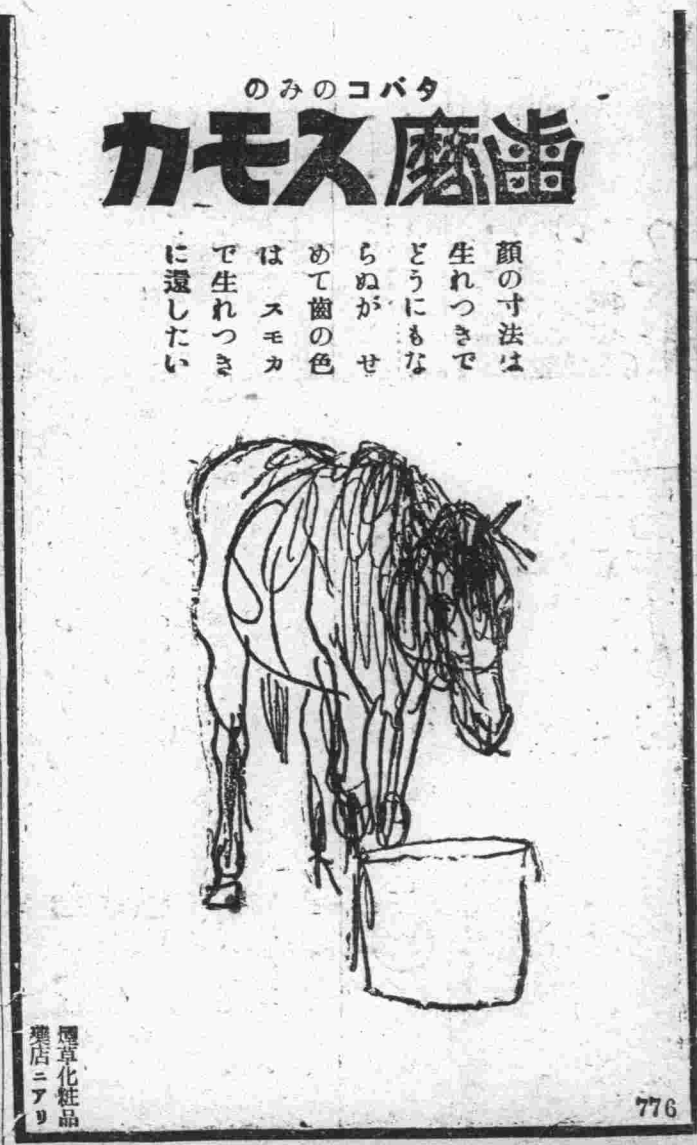 タバコのみの
歯磨スモカ
顔の寸法は
生れつきで
どうにもな
らぬが せ
めて歯の色
は スモカ
で生れつき
に還したい
煙草化粧品
藥店ニアリ
776